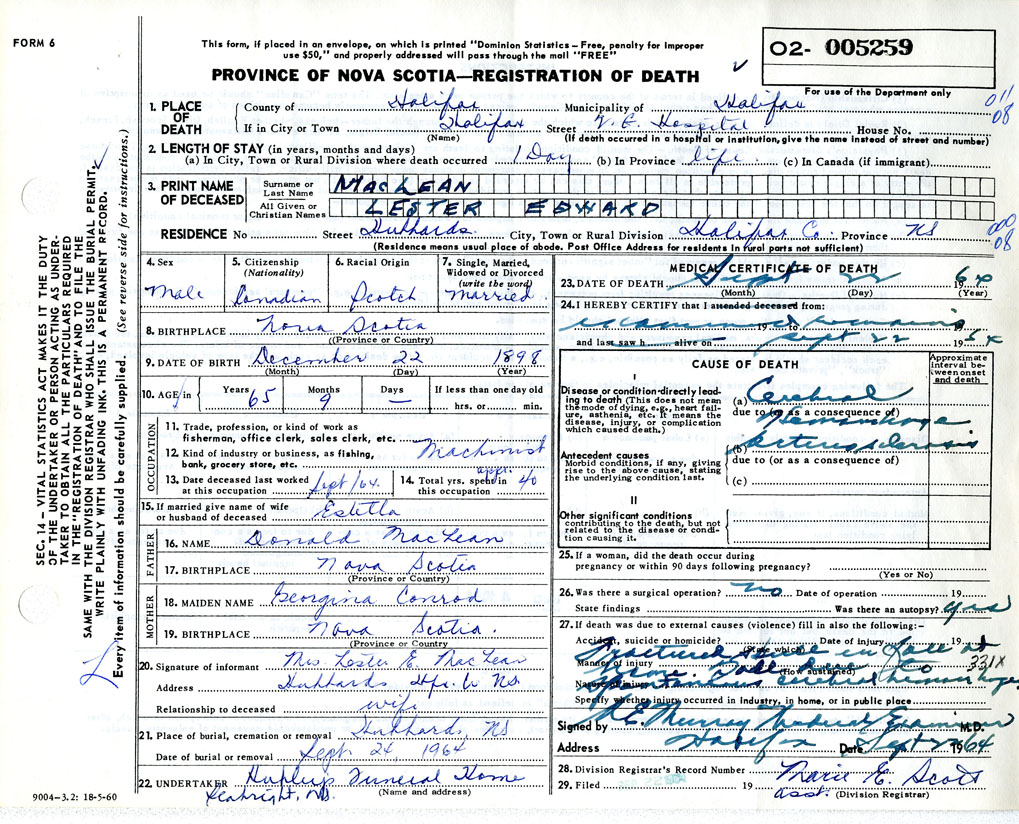 FORM 6
This form, if placed in an envelope, on which is printed "Dominion Statistics – Free, penalty for improper
use $50," and properly addressed will pass through the mail "FREE"
O2- 005259
PROVINCE OF NOVA SCOTIA—REGISTRATION OF DEATH
For use of the Department only
011
08
1. PLACE OF DEATH
County of Halifax Municipality of Halifax
If in City or Town Halifax Street V. G. Hospital House No.
(Name) (If death occurred in a hospital or institution, give the name instead of street and number)
2. LENGTH OF STAY (in years, months and days)
(a) In City, Town or Rural Division where death occurred 1 Day (b) In Province life (c) In Canada (if immigrant)
3. PRINT NAME OF DECEASED
Surname or Last Name MACLEAN
All Given or Christian Names LESTER EDWARD
RESIDENCE No Street Hubbards City, Town or Rural Division Halifax Co. Province NS
000
08
(Residence means usual place of abode. Post Office Address for residents in rural parts not sufficient)
4. Sex
Male
5. Citizenship
(Nationality)
Canadian
6. Racial Origin
Scotch
7. Single, Married, Widowed or Divorced
(write the word)
Married
8. BIRTHPLACE Nova Scotia
((Province or Country)
9. DATE OF BIRTH December 22 1898
(Month) (Day) (Year)
10. AGE in
Years 65
Months 9
Days —
If less than one day old
hrs. or min.
OCCUPATION
11. Trade, profession, or kind of work as
fisherman, office clerk, sales clerk, etc.
Machinist
12. Kind of industry or business, as fishing,
bank, grocery store, etc.
13. Date deceased last worked
at this occupation Sept/64
14. Total yrs. spent in
this occupation appr. 40
15. If married give name of wife
or husband of deceased Estella
FATHER
16. NAME Donald MacLean
17. BIRTHPLACE Nova Scotia
(Province or Country)
MOTHER
18. MAIDEN NAME Georgina Conrod
19. BIRTHPLACE Nova Scotia.
(Province or Country
20. Signature of informant Mrs. Lester E. MacLean
Address Hubbards Hfx. Co NS
Relationship to deceased wife
21. Place of burial, cremation or removal Hubbards, NS
Date of burial or removal Sept. 24 1964
22. UNDERTAKER Funeral Home
(Name and address)
Seabright, NS.
9004–3.2: 18-5-60
MEDICAL CERTIFICATE OF DEATH
23. DATE OF DEATH Sept 22 1964
(Month) (Day) (Year)
24. I HEREBY CERTIFY that I attended deceased from:
examined 19 to remains 19
and last saw h alive on Sept 22 1964
CAUSE OF DEATH
Approximate interval between onset and death
I
Disease or condition directly leading to death (This does not mean the mode of dying, e.g., heart failure, asthenia, etc. It means the disease, injury, or complication which caused death.)
(a) Cerebral
due to (or as a consequence of)
Hemorrhage
Antecedent causes
Morbid conditions, if any, giving rise to the above cause, stating the underlying condition last.
(b) Arteriosclerosis
due to (or as a consequence of)
(c)
II
Other significant conditions
contributing to the death, but not related to the disease or condition causing it.
25. If a woman, did the death occur during
pregnancy or within 90 days following pregnancy?
(Yes or No)
26. Was there a surgical operation? no Date of operation 19
State findings Was there an autopsy? yes
27. If death was due to external causes (violence) fill in also the following:–
Accident, suicide or homicide? Date of injury 19
(State which)
Fractured in fall at
Manner of injury
(How sustained)
home. Fall due to 331X
Nature of injury
spontaneous cerebral hemorrhage
Specify whether injury occurred in industry, in home, or in public place
Signed by Murray Medical Examiner M.D.
Address Halifax Date Sept 22 1964
28. Division Registrar's Record Number
Marie E. Scott
29. Filed 19 asst. (Division Registrar)
SEC. 14 – VITAL STATISTICS ACT MAKES IT THE DUTY
OF THE UNDERTAKER OR PERSON ACTING AS UNDER-
TAKER TO OBTAIN ALL THE PARTICULARS REQUIRED
IN THE "REGISTRATION OF DEATH" AND TO FILE THE
SAME WITH THE DIVISION REGISTRAR WHO SHALL ISSUE THE BURIAL PERMIT.
WRITE PLAINLY WITH UNFADING INK. THIS IS A PERMANENT RECORD.
Every item of information should be carefully supplied. (See reverse side for instructions.)